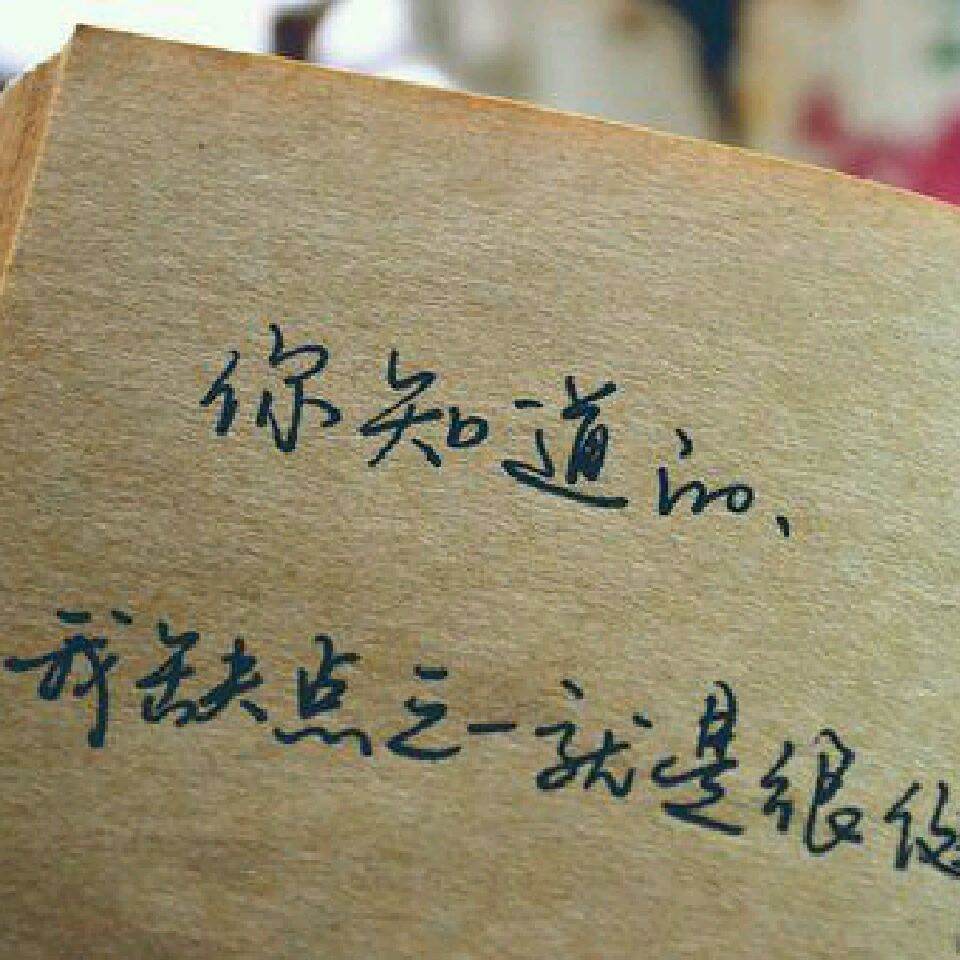 你知道的、
我缺点之一就是很